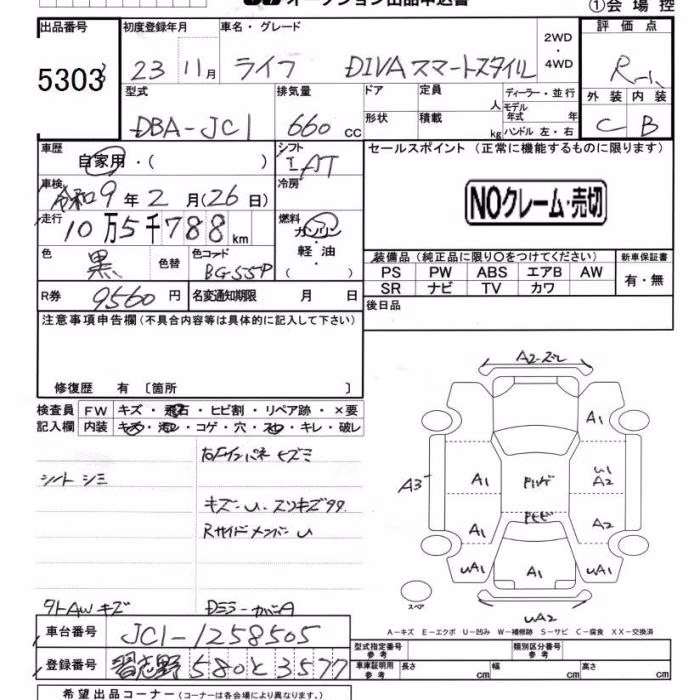 オークション出品申込書
①会場控
出品番号 初度登録年月 車名・グレード 評価点
5303 23 11月 ライフ DIVA スマートスタイル 2WD・4WD R-1
型式 排気量 ドア 定員 人 ディーラー・並行 外装 内装
DBA-JC1 660 cc 形状 積載 kg モデル年式 年 C B
ハンドル 左・右
車歴 自家用・( ) シフト IAT セールスポイント (正常に機能するものに限ります)
車検 令和9年2月(26日) 冷房
NOクレーム・売切
走行 10万5千788km 燃料 ガソリン
軽・油
( )
色 黒 色替 色コード BG55P
装備品 (純正品に限り○をつけてください) 新車保証書
PS PW ABS エアB AW 有・無
SR ナビ TV カワ
R券 9560円 名変通知期限 月 日
後日品
注意事項申告欄 (不具合内容等は具体的に記入して下さい)
修復歴 有 〔箇所 〕
検査員 FW キズ・飛石・ヒビ割・リペア跡・×要
記入欄 内装 キズ・汚れ・コゲ・穴・スレ・キレ・破レ
シート シミ
キズ-U. スリキズ
RサイドメンバーU
タトAWキズ
DミラーカバーA
A2
A1
A3
A1
U1
A2
A1
A2
UA1
A1
UA1
スペア
UA2
A-キズ E-エクボ U-凹み W-補修跡 S-サビ C-腐食 XX-交換済
車台番号 JC1-1258505
登録番号 習志野580と3577
型式指定番号 参考 類別区分番号 参考
車庫証明用 参考 長さ cm 幅 cm 高さ cm
希望出品コーナー (コーナーは各会場により異なります。)